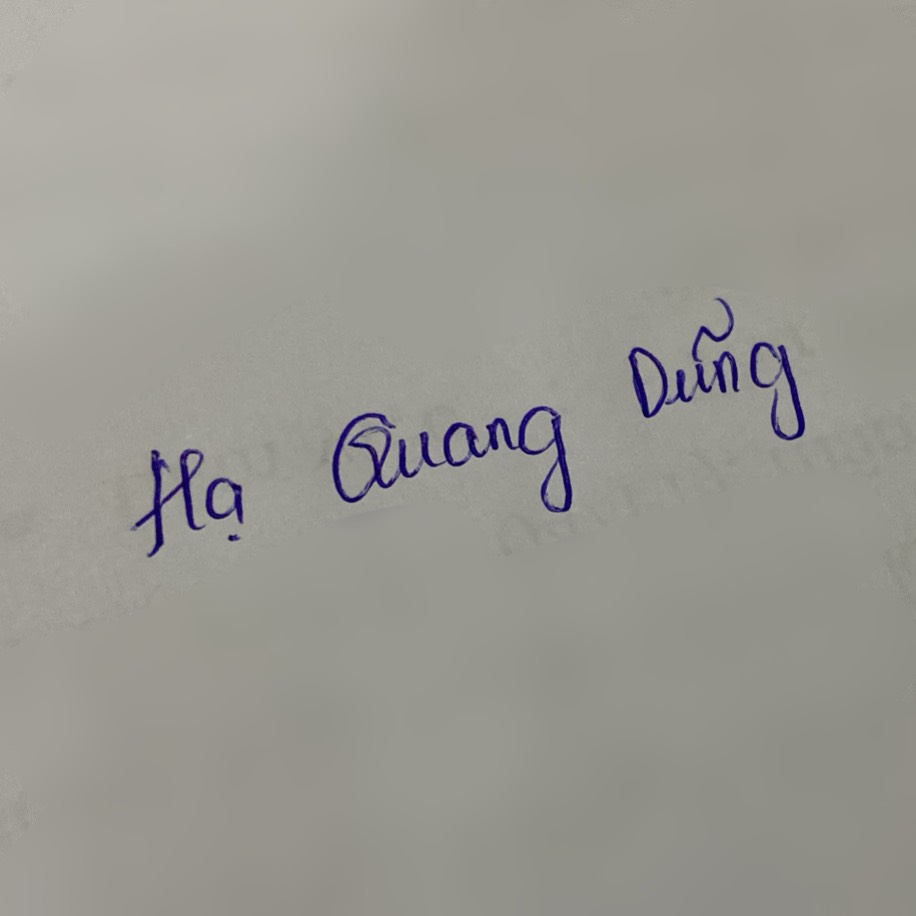 Hạ Quang Dũng